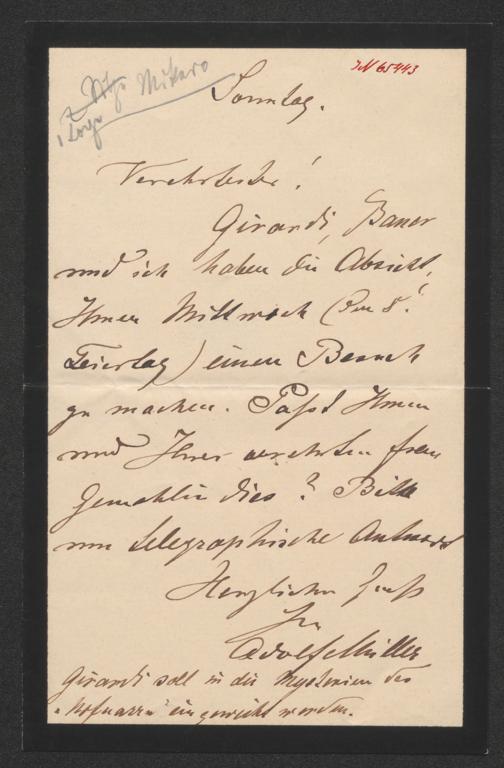 IN 65443
2 Logo Mikado
1 Loge
Sonntag.
Verehrtester!
Girardi, Bauer
und ich haben die Absicht,
Ihnen Mittwoch (den 8.!
Feiertag) einen Besuch
zu machen. Paßt Ihnen
und Ihrer verehrten Frau
Gemahlin dies? Bitte
um telegraphische Antwort
Herzlichen Gruß
Ihr
Adolf Müller
Girardi soll in die Mysterien des
"Hofnarrn" eingeweiht werden.